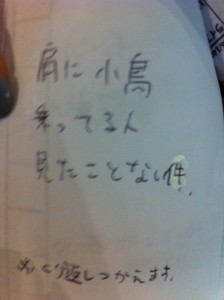 肩に小鳥
乗ってる人
見たことない件.
めぐり返しつかえます.